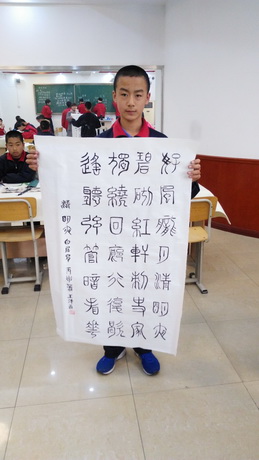 好風朧月清明夜
碧砌紅軒刺史家
獨繞回廊行復歇
遙聽弦管暗看花
清明夜 白居易